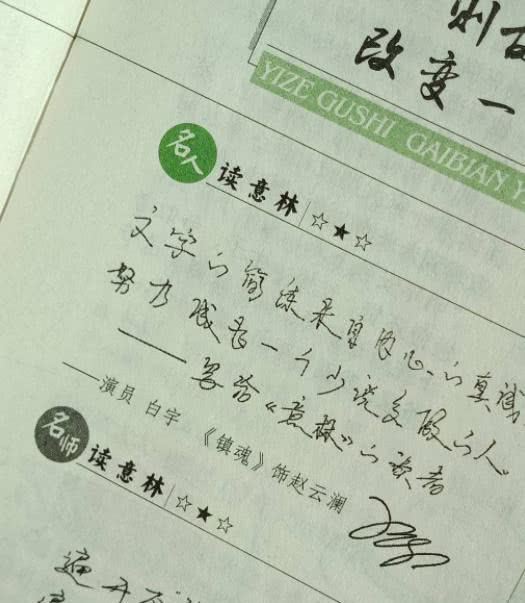 别
改变一
YIZE GUSHI GAIBIAN Y
名人
读意林 ☆★☆
文字的简练来自内心的真诚
努力成为一个少说多做的人
——写给《意林》的读者
——演员 白宇 《镇魂》饰赵云澜
名师
读意林 ☆★☆
遍开